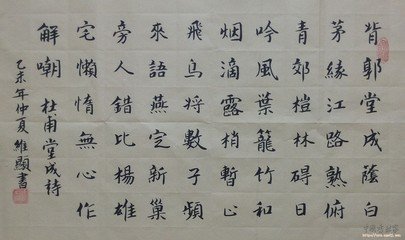 背郭堂成蔭白
茅緣江路熟俯
青郊榿林礙日
吟風葉籠竹和
烟滴露梢暫止
飛鳥將數子頻
來語燕定新巢
旁人錯比楊雄
宅懶惰無心作
解嘲 杜甫堂成詩
乙未年仲夏維顯書